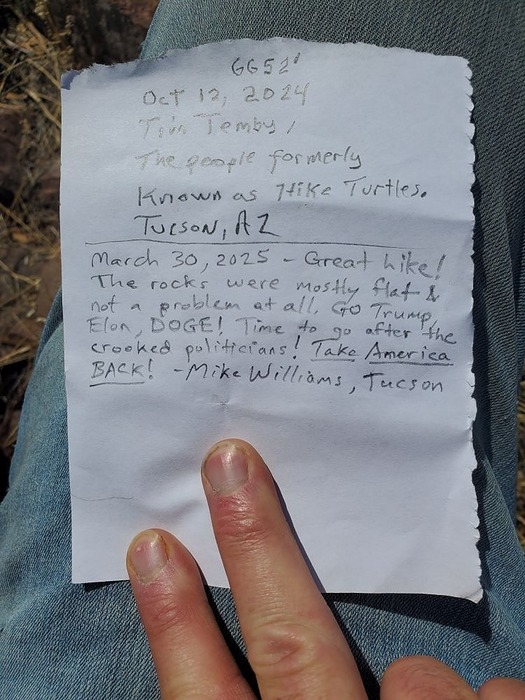 6652'
Oct 12, 2024
Tim Temby /
The people formerly
Known as Hike Turtles.
Tucson, AZ
March 30, 2025 - Great hike!
The rocks were mostly flat &
not a problem at all. GO Trump,
Elon, DOGE! Time to go after the
crooked politicians! Take America
BACK! - Mike Williams, Tucson